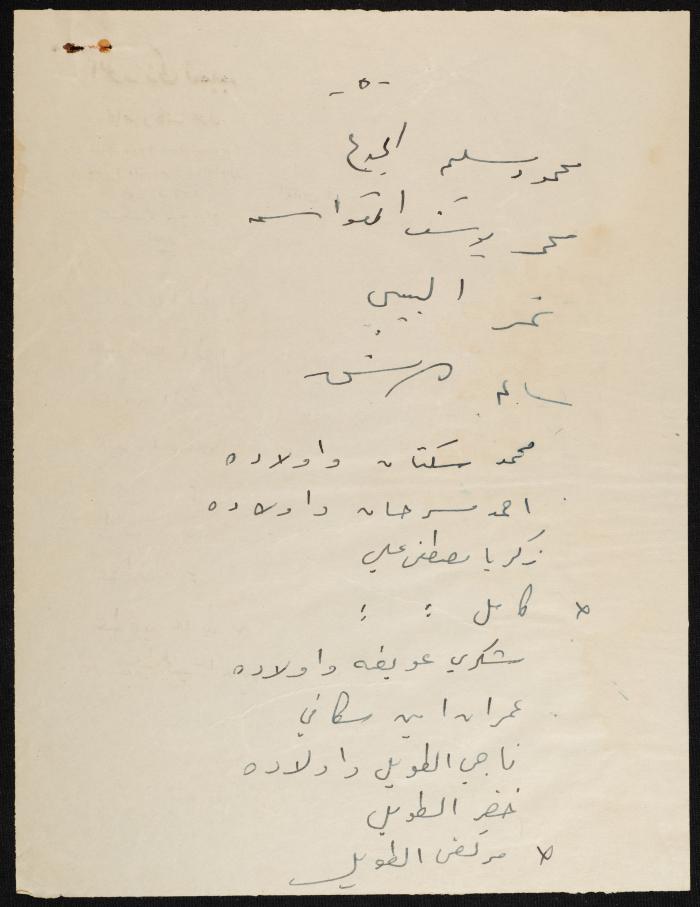 - ٥ -
محمود سليم الجدع
محمد يوسف القواسمه
نمر البيبي
محمد سكتان واولاده
احمد سرحان واولاده
زكريا مصطفى علي
x كامل : :
شكري عويضه واولاده
عمران امين سكافي
ناجي الطويل واولاده
خضر الطويل
x مرتضى الطويل